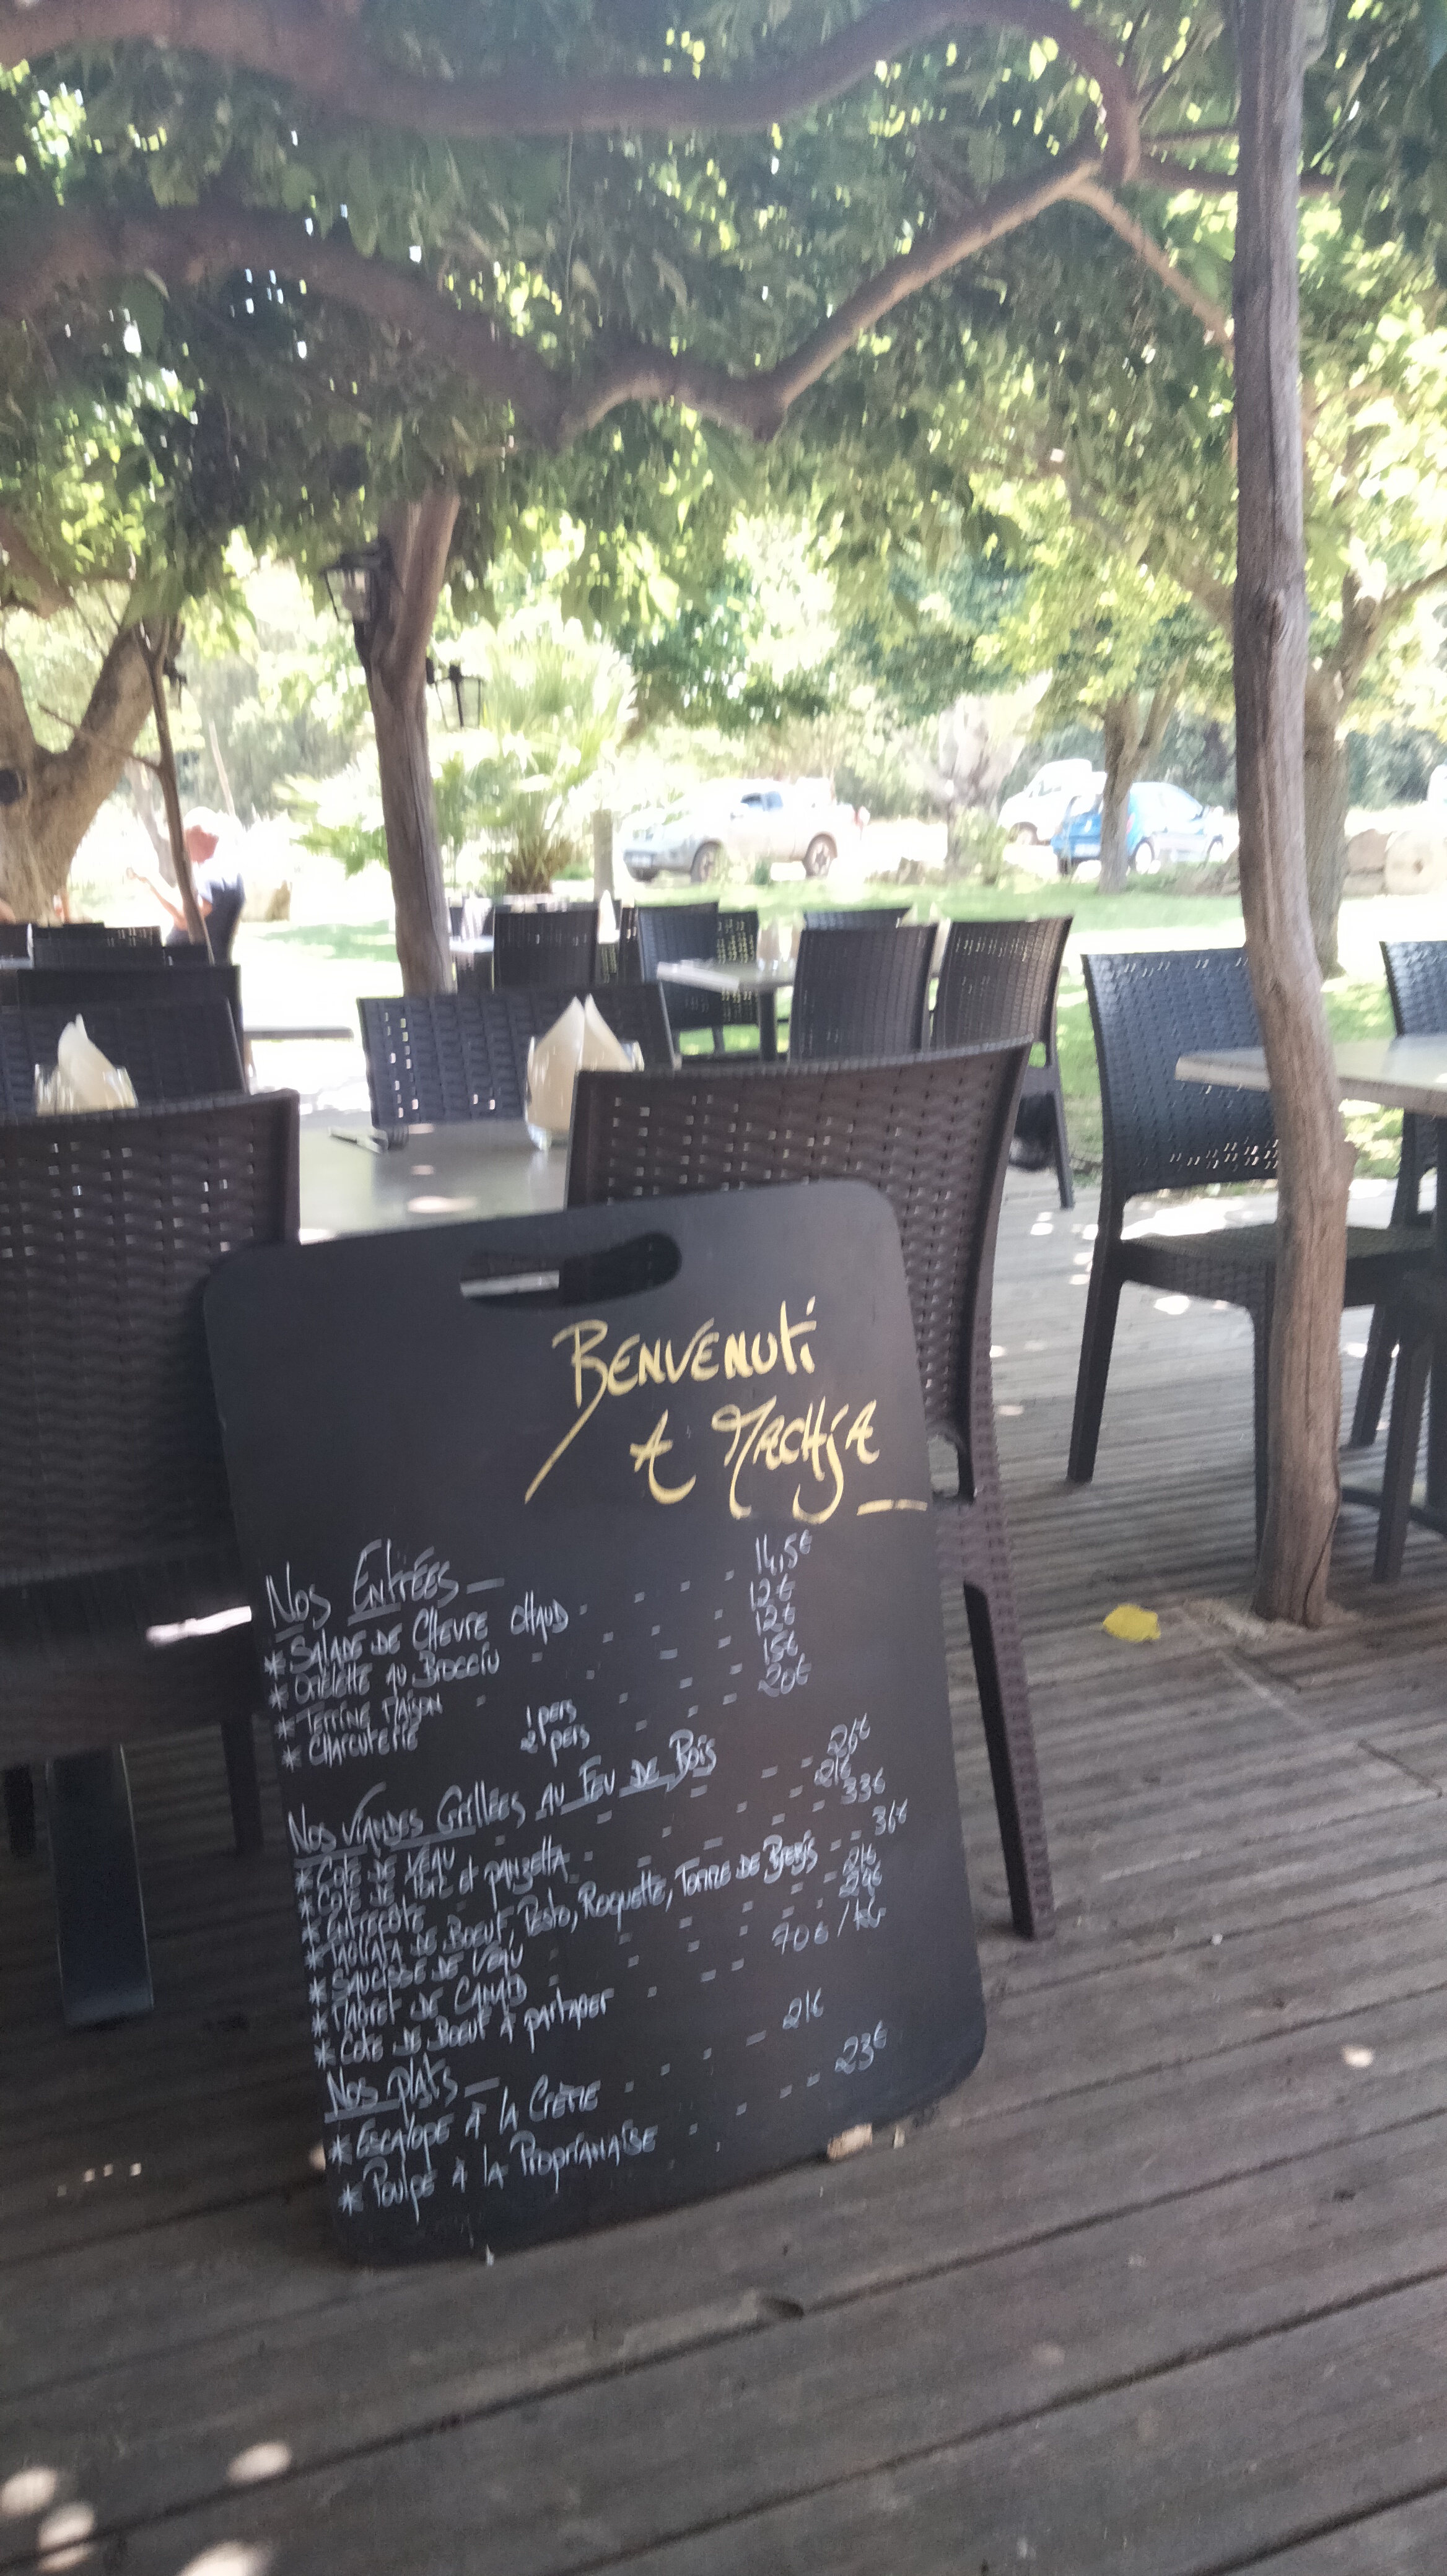 BENVENUTI
A MACHJA
NOS ENTRÉES
* SALADE DE CHEVRE CHAUD 14,5€
* OMELETTE AU BROCCIU 12€
* TERRINE MAISON 12€
* CHARCUTERIE 1 PERS 15€
2 PERS 20€
NOS VIANDES GRILLÉES AU FEU DE BOIS
* COTE DE VEAU 26€
* COTE DE PORC ET PANZETTA 21€
* ENTRECOTE 33€
* TAGLIATA DE BOEUF, PESTO, ROQUETTE, TOMME DE BREBIS 36€
* SAUCISSE DE VEAU 21€
* MAGRET DE CANARD
* COTE DE BOEUF À PARTAGER 70€/KG
NOS PLATS
* ESCALOPE À LA CRÈME 21€
* POULPE À LA PROPRIANAISE 23€